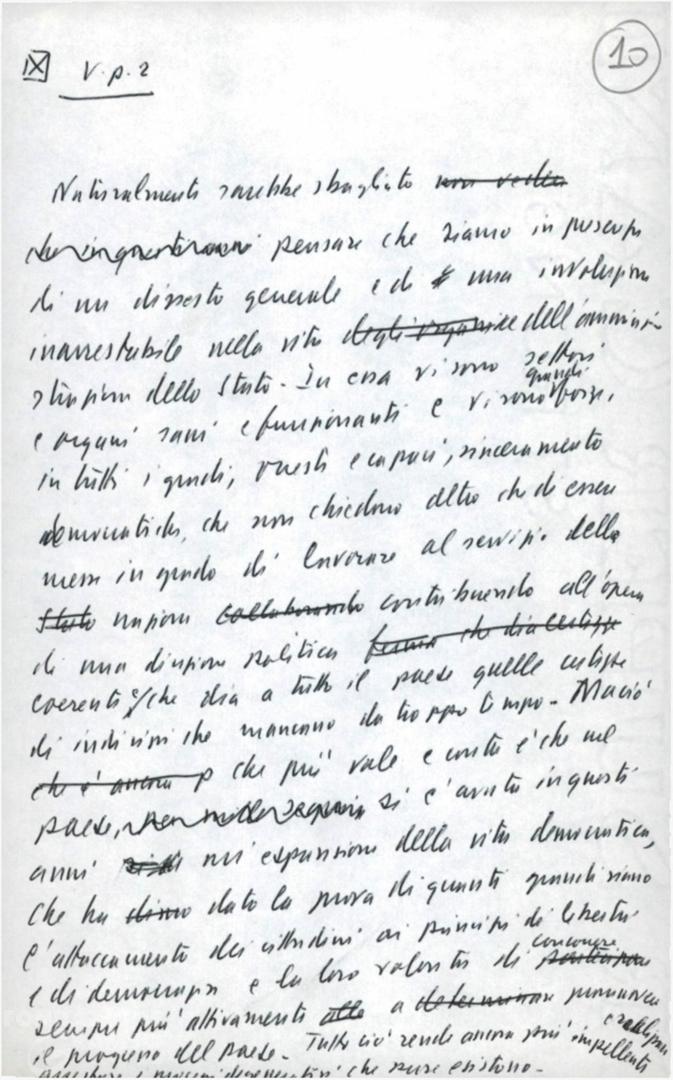 IX V. p. 2
10
Naturalmente sarebbe sbagliato non vedere
pensare che siamo in presenza
di un dissesto generale e di una involuzione
inarrestabile nella vita degli organi dell'ammini-
strazione dello Stato. In essa vi sono settori
e organi sani e funzionanti e vi sono forze,
in tutti i gradi, oneste e capaci, sinceramente
democratiche, che non chiedono altro che di essere
messe in grado di lavorare al servizio della
Stato nazione collaborando contribuendo all'opera
di una direzione politica ferma che dia certezze
coerente e che dia a tutto il paese quelle certezze
di indirizzi che mancano da troppo tempo. Ma ciò
che è ancora p che più vale e conta è che nel
paese, si è avuta in questi
anni un'espansione della vita democratica,
che ha dato la prova di quanto grandi siano
l'attaccamento dei cittadini ai principi di libertà
e di democrazia e la loro volontà di concorrere partecipare
sempre più attivamente alla a determinare promuovere
il progresso del paese. Tutto ciò rende ancora più impellente
i processi degenerativi che pure esistono.